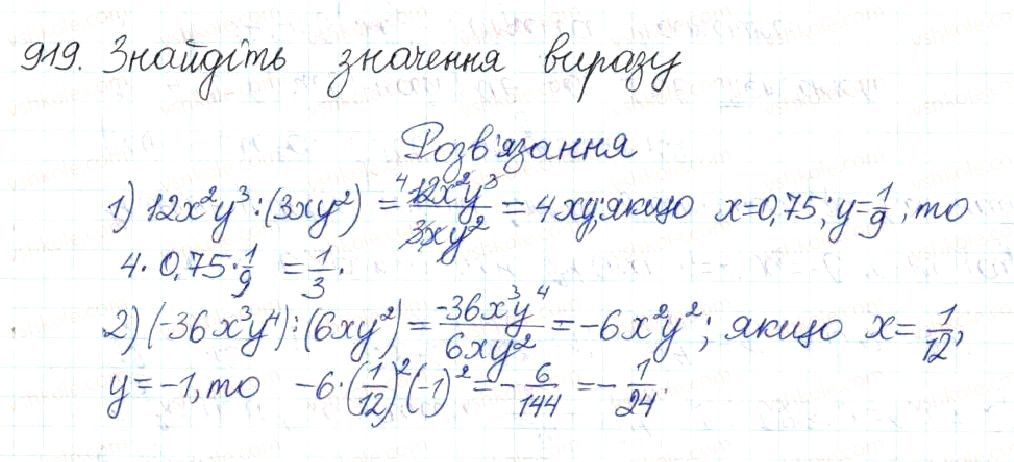 919. Знайдіть значення виразу
Розв'язання
1) 12x²y³ : (3xy²) = 12x²y³/3xy² = 4xy; якщо x=0,75; y=1/9, то
4 · 0,75 · 1/9 = 1/3.
2) (-36x³y⁴) : (6xy²) = -36x³y⁴/6xy² = -6x²y²; якщо x= 1/12,
y= -1, то -6·(1/12)²(-1)² = -6/144 = -1/24.